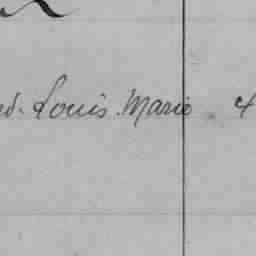 Louis Marie 4